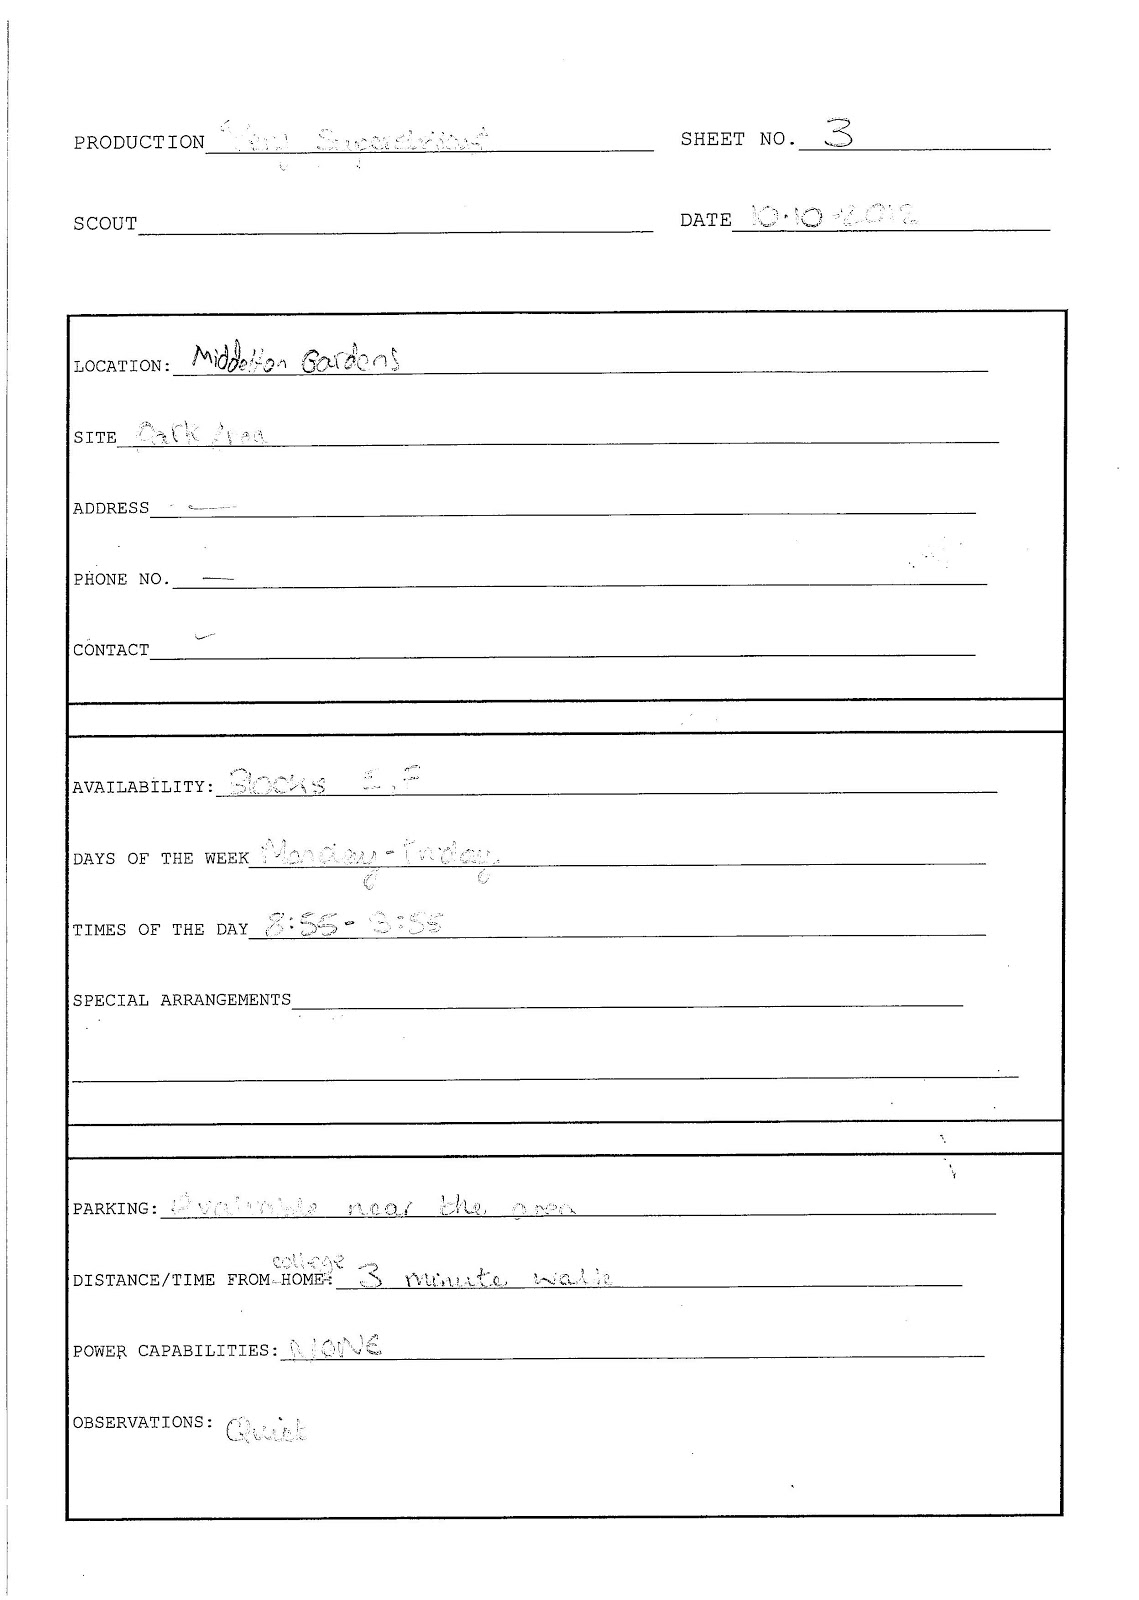 PRODUCTION Very Superstitious SHEET NO. 3
SCOUT DATE 10.10.2012
LOCATION: Middelton Gardens
SITE Park Area
ADDRESS —
PHONE NO. —
CONTACT —
AVAILABILITY: Blocks E, F
DAYS OF THE WEEK Monday - Friday
TIMES OF THE DAY 8:55 - 3:55
SPECIAL ARRANGEMENTS
PARKING: Available near the area
college
DISTANCE/TIME FROM HOME: 3 minute walk
POWER CAPABILITIES: NONE
OBSERVATIONS: Quiet